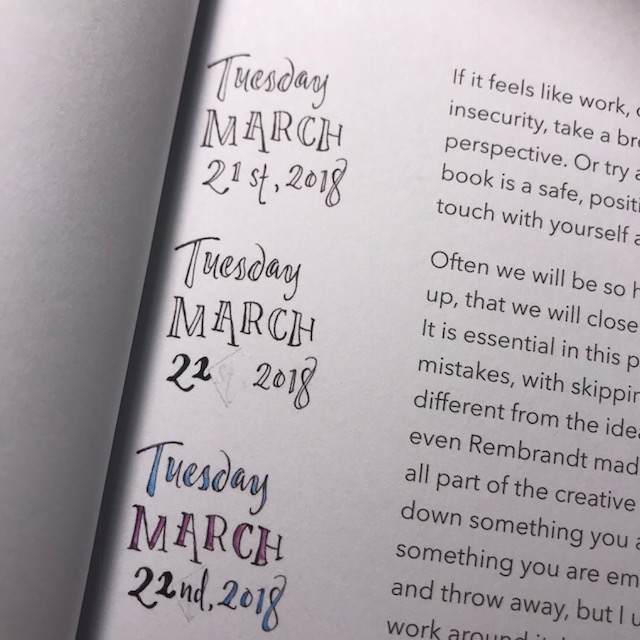 Tuesday
MARCH
21st, 2018
Tuesday
MARCH
22 2018
Tuesday
MARCH
22nd, 2018
If it feels like work,
insecurity, take a
perspective. Or try a
book is a safe,
touch with yourself
Often we will be so
up, that we will close
It is essential in this
mistakes, with
different from the
even Rembrandt
all part of the creative
down something you
something you are
and throw away, but I
work around